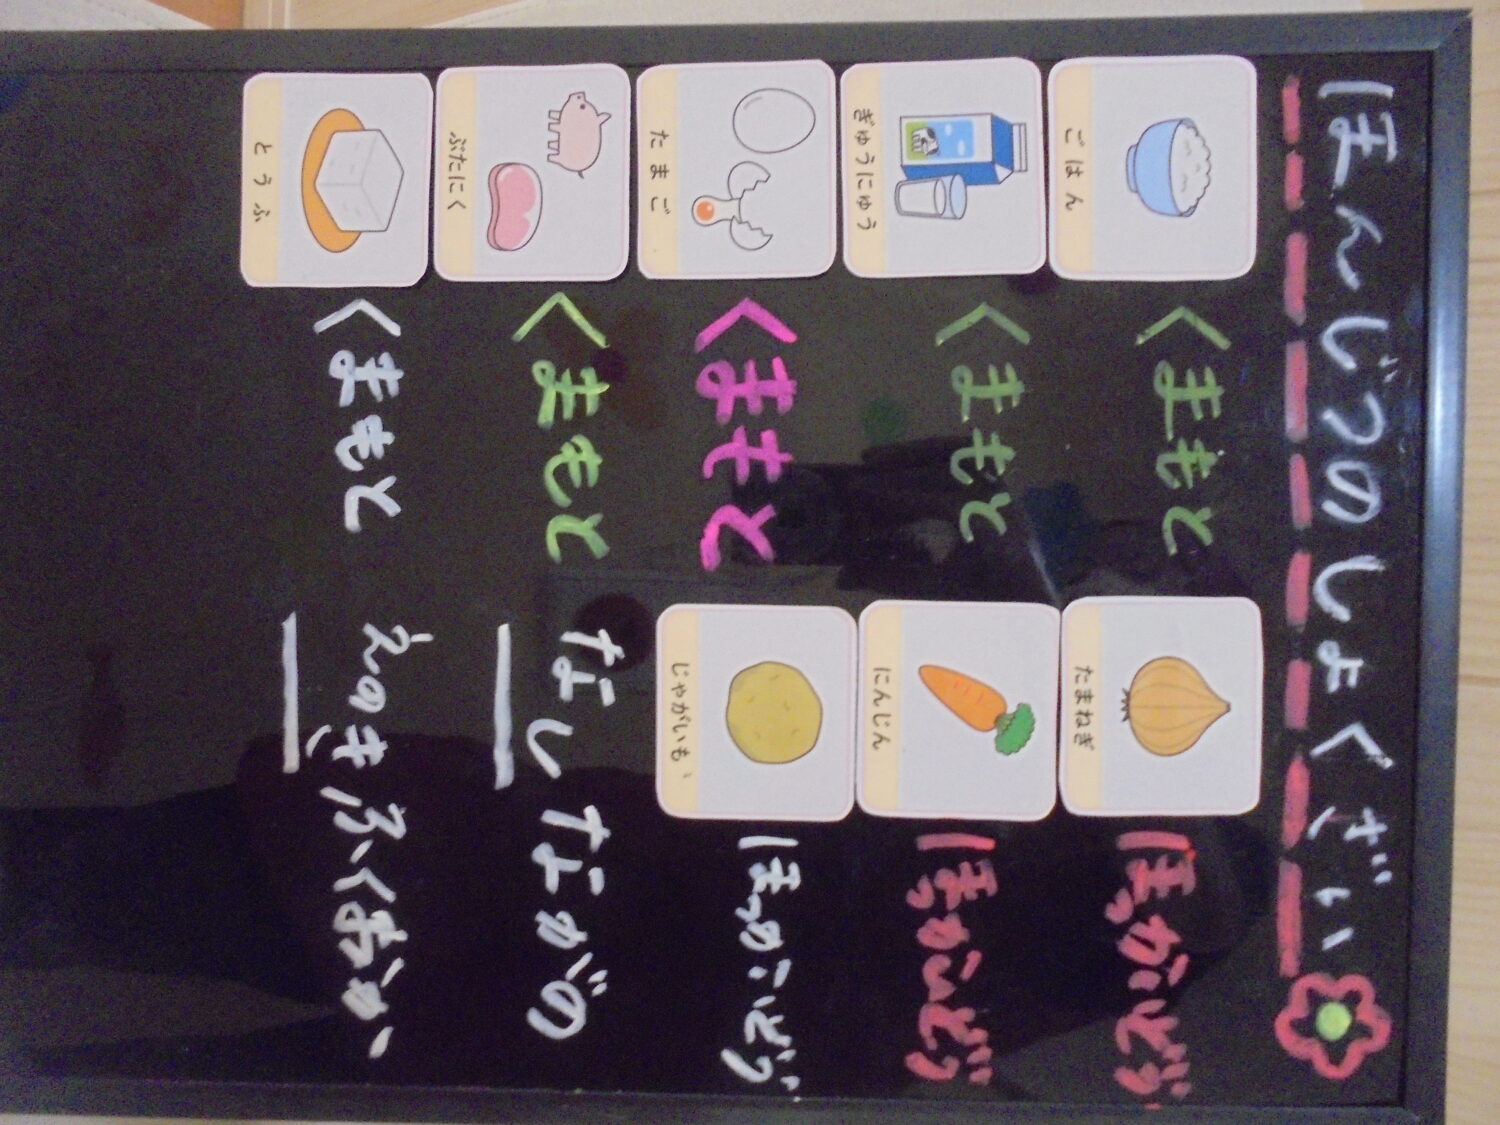 ほんじつのしょくざい
ごはん くまもと
ぎゅうにゅう くまもと
たまご くまもと
ぶたにく くまもと
とうふ くまもと
たまねぎ ほっかいどう
にんじん ほっかいどう
じゃがいも ほっかいどう
なし ながの
えのき ふくおか